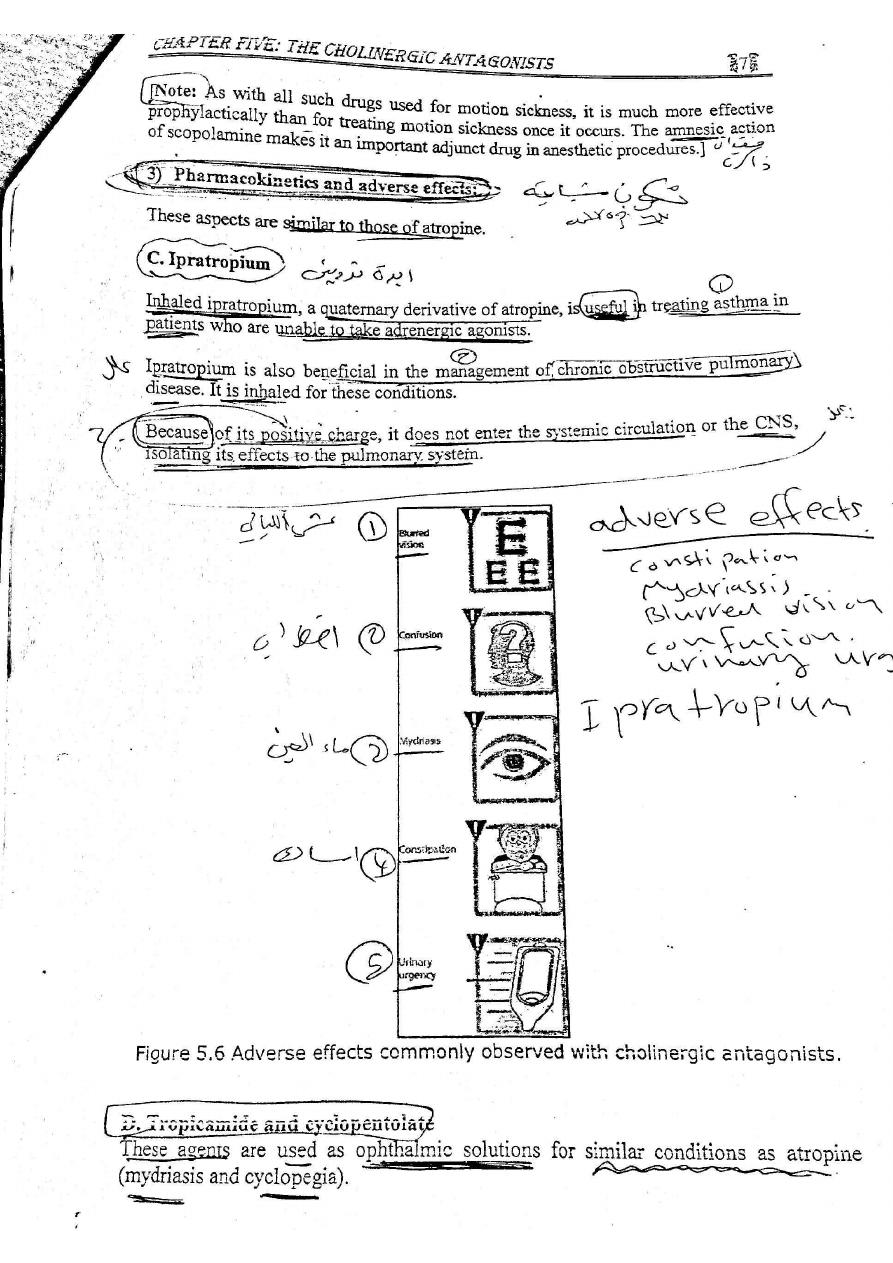 CHAPTER FIVE: THE CHOLINERGIC ANTAGONISTS
[Note: As with all such drugs used for motion sickness, it is much more effective
prophylactically than for treating motion sickness once it occurs. The amnesic action
of scopolamine makes it an important adjunct drug in anesthetic procedures.]
3) Pharmacokinetics and adverse effects:
These aspects are similar to those of atropine.
C. Ipratropium
Inhaled ipratropium, a quaternary derivative of atropine, is useful in treating asthma in
patients who are unable to take adrenergic agonists.
Ipratropium is also beneficial in the management of chronic obstructive pulmonary
disease. It is inhaled for these conditions.
Because of its positive charge, it does not enter the systemic circulation or the CNS,
isolating its effects to the pulmonary system.
adverse effects
constipation
Mydriassis
Blurred vision
confusion.
urinary urg
Ipratropium
Blurred
vision
E
E E
Confusion
?
Mydriasis
ماء العين
Constipation
Urinary
urgency
Figure 5.6 Adverse effects commonly observed with cholinergic antagonists.
D. Tropicamide and cyclopentolate
These agents are used as ophthalmic solutions for similar conditions as atropine
(mydriasis and cyclopegia).